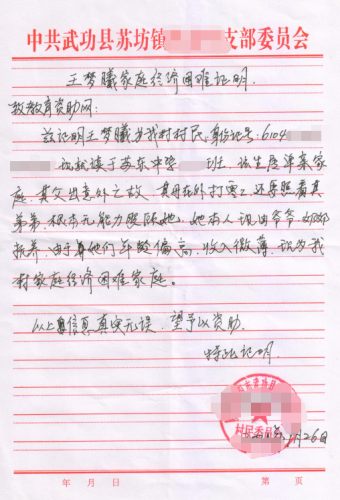 中共武功县苏坊镇 支部委员会
王梦曦家庭经济困难证明
教育资助网:
兹证明王梦曦为我村村民,身份证号:6104
现就读于苏东中学 班。该生是单亲家
庭,其父出意外之故,其母在外打工,还要照看其
弟弟,根本无能力照顾她,她本人现由爷爷、奶奶
抚养,由于他们年龄偏高,收入微薄,现为我
村家庭经济困难家庭。
以上信息真实无误,望予以资助。
特此证明
中共武功县
村民委员会
月26日
年 月 日 第 页